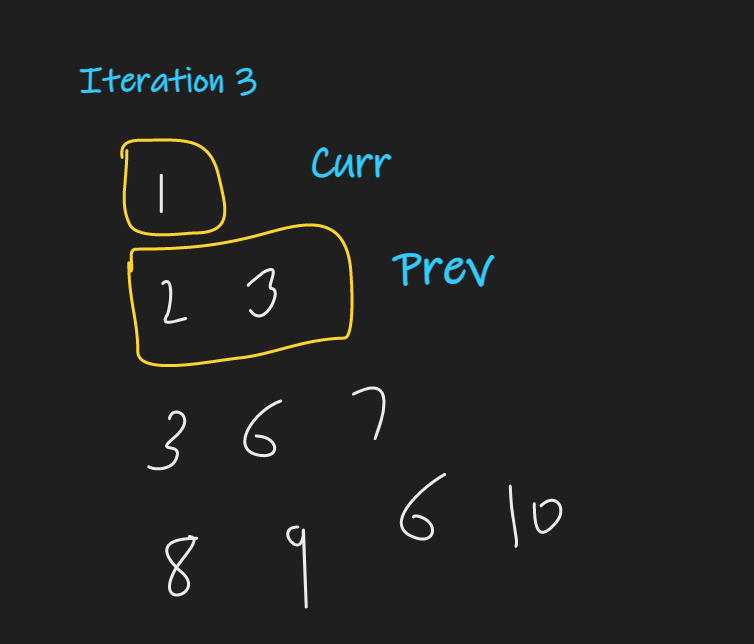 Iteration 3
1 Curr
2 3 Prev
3 6 7
8 9 6 10